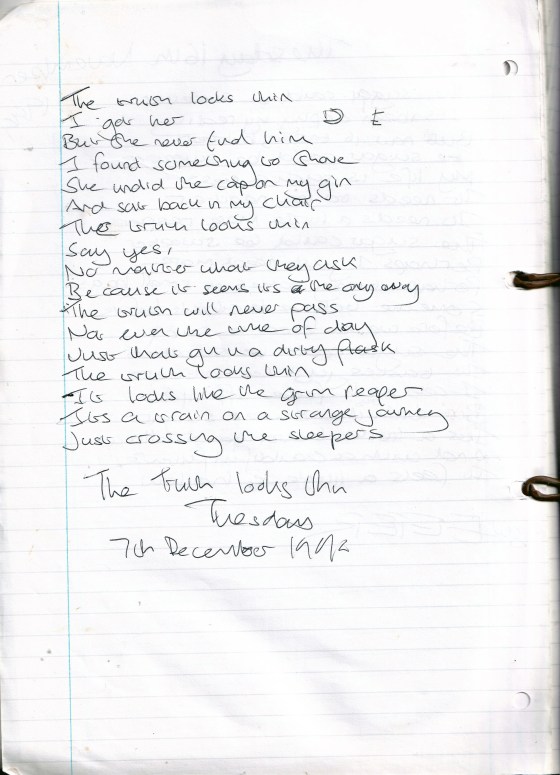 The truth looks thin
I got her D E
But she never find him
I found something to share
She undid the cap on my gin
And sat back in my chair
The truth looks thin
Say yes,
No matter what they ask
Because it seems its the only way
The truth will never pass
Not even the time of day
Just that gin in a dirty flask
The truth looks thin
It looks like the grim reaper
Its a train on a strange journey
Just crossing the sleepers
The truth looks thin
Tuesday
7th December